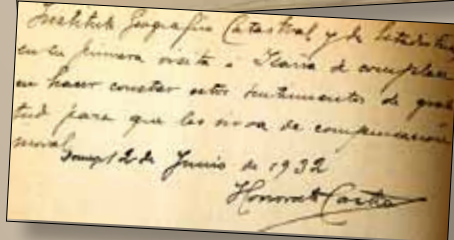 Instituto Geográfico Catastral y de Estadística
en su primera visita a Ilaria se complace
en hacer constar estos sentimientos de grati
tud para que les sirva de compensación
moral
2 de Junio de 1932
Honorato Castro